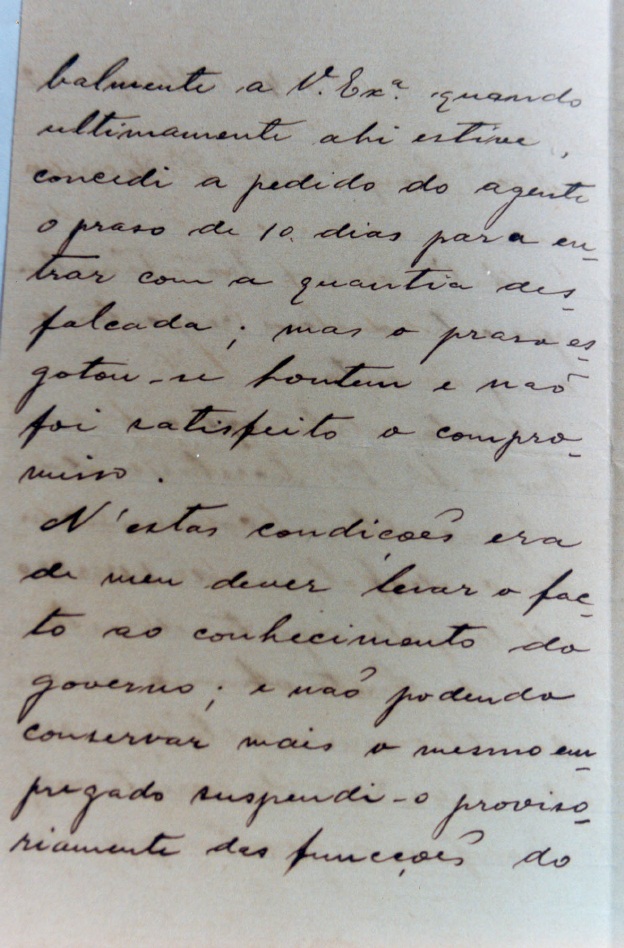 balmente a V. Exª. quando
ultimamente ahi estive,
concedi a pedido do agente
o praso de 10 dias para en-
trar com a quantia des-
falcada; mas o praso es-
gotou-se hontem e não
foi satisfeito o compro-
misso.
N'estas condições era
de meu dever levar o fac-
to ao conhecimento do
governo; e não podendo
conservar mais o mesmo em-
pregado suspendi-o proviso-
riamente das funcções do